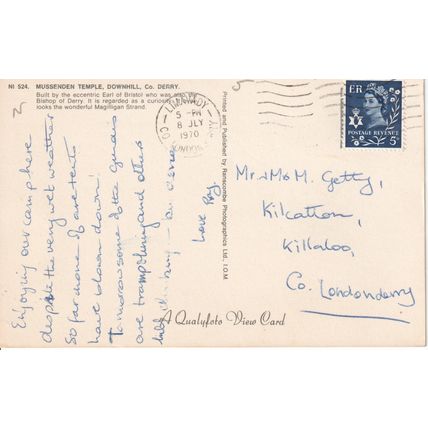 NI 524. MUSSENDEN TEMPLE, DOWNHILL, Co. DERRY.
Built by the eccentric Earl of Bristol who was also
Bishop of Derry. It is regarded as a curiosity
looks the wonderful Magilligan Strand.
Enjoying our camp here
despite the very wet weather
So far none of are tents
have blown down!
Tomorrow some of the guides
are tramping and others
Love Roy
LIMAVADY
5 - PM
8 JLY
1970
CO
LONDONDERRY
Printed and Published by Ranscombe Photographics Ltd., I.O.M.
E II R
POSTAGE REVENUE
5D
Mr. & Mrs M. Getty,
Kilcatton,
Killaloo,
Co. Londonderry
A Qualyfoto View Card